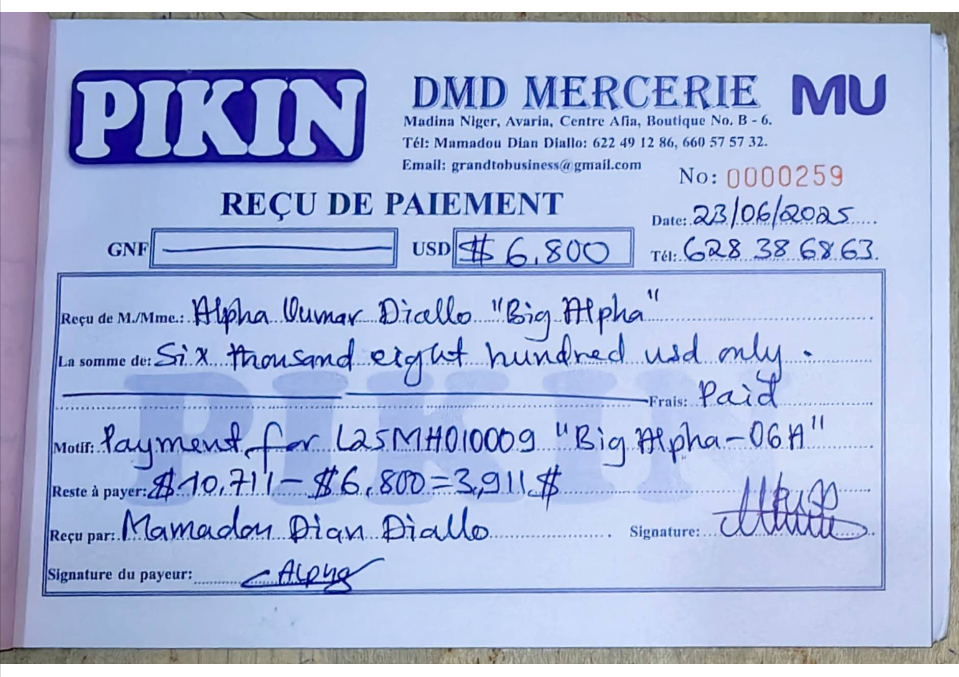 PIKIN
DMD MERCERIE MU
Madina Niger, Avaria, Centre Afia, Boutique No. B - 6.
Tél: Mamadou Dian Diallo: 622 49 12 86, 660 57 57 32.
Email: grandtobusiness@gmail.com
No: 0000259
REÇU DE PAIEMENT
Date: 23/06/2025
GNF USD $ 6,800 Tél: 628 38 68 63
Reçu de M./Mme.: Alpha Oumar Diallo "Big Alpha"
La somme de: Six thousand eight hundred usd only.
Frais: Paid
Motif: Payment for L25MH010009 "Big Alpha-06A"
Reste à payer: $ 10,711 - $6,800 = 3,911 $
Reçu par: Mamadou Dian Diallo Signature:
Signature du payeur: Alpha
PIKIN